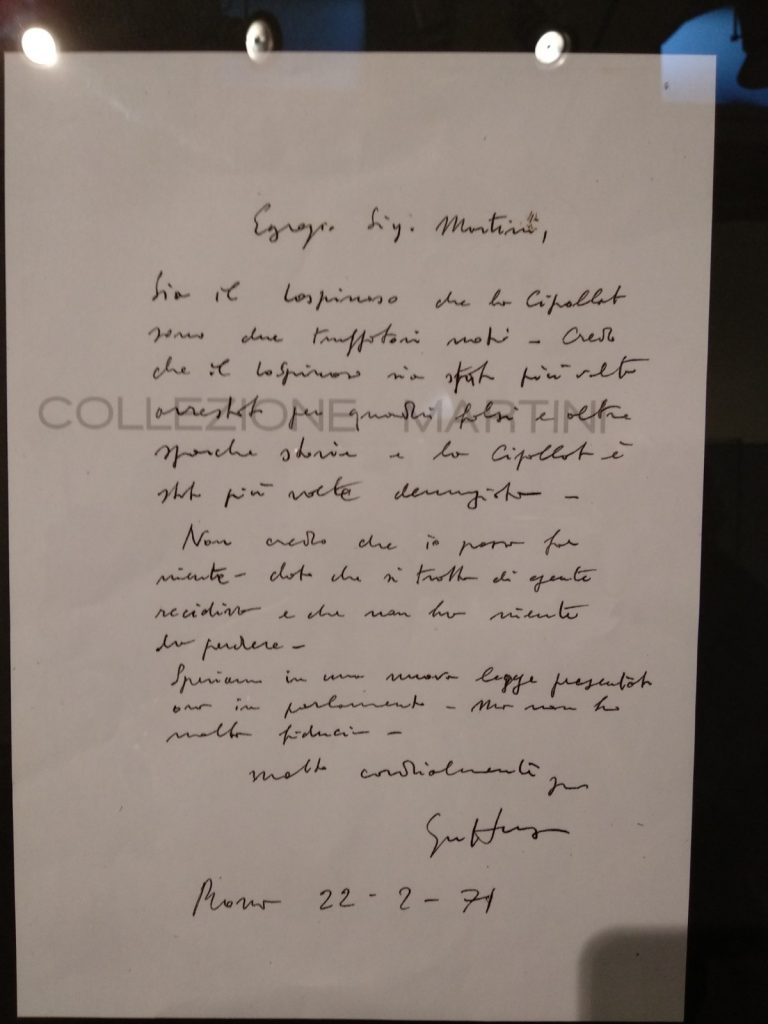 Egregio Sig. Martini,
Sia il Lospinoso che la Cipollat
sono due truffatori noti - Credo
che il Lospinoso sia stato più volte
arrestato per quadri falsi e altre
COLLEZIONE MARTINI
sporche storie e la Cipollat è
stata più volte denunziata -
Non credo che io possa far
niente - dato che si tratta di gente
recidiva e che non ha niente
da perdere -
Speriamo in una nuova legge presentata
ora in parlamento - Ma non ho
molta fiducia -
Molto cordialmente
Guttuso
Roma 22 - 2 - 71